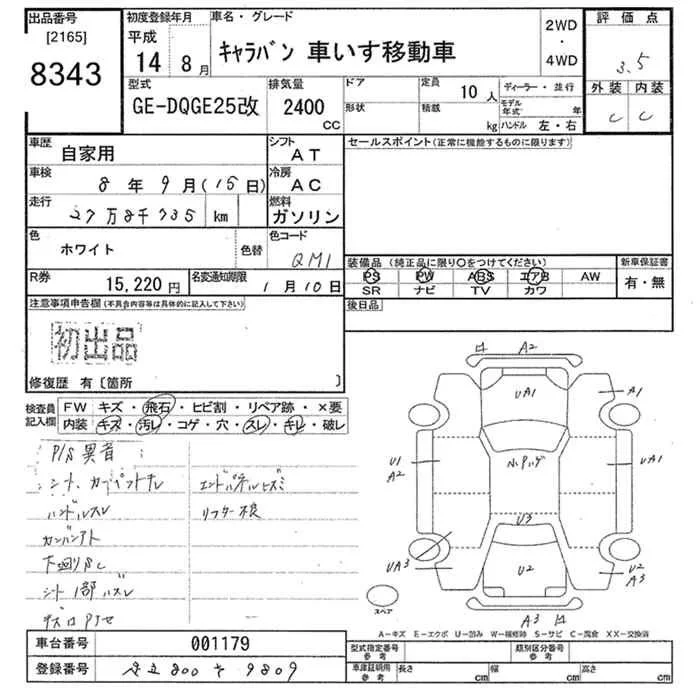 出品番号
[2165]
8343
初度登録年月
平成
14 8月
車名・グレード
キャラバン 車いす移動車
2WD
・
4WD
評価点
3.5
外装 内装
C C
型式
GE-DQGE25改
排気量
2400
CC
ドア
形状
定員
10人
積載
kg
ディーラー・並行
モデル年式 年
ハンドル 左・右
車歴
自家用
シフト
AT
セールスポイント(正常に機能するものに限ります)
車検
8年9月(15日)
冷房
AC
走行
27万8千735 km
燃料
ガソリン
色
ホワイト
色替
色コード
QM1
装備品(純正品に限り○をつけてください)
PS PW ABS エアB AW
SR ナビ TV カワ
新車保証書
有・無
R券
15,220円
名変通知期限
1月10日
後日品
注意事項申告欄(不具合内容等は具体的に記入して下さい)
初出品
修復歴 有〔箇所 〕
検査員記入欄
FW キズ・飛石・ヒビ割・リペア跡・×要
内装 キズ・汚レ・コゲ・穴・スレ・キレ・破レ
P/S異音
シート、カーペットキレ
ハンドルスレ
カンバンアト
下廻りサビ
シート1部ハズレ
エンドパネルヒズミ
リフター不良
A2
UA1
A1
U1
A2
小Pハゲ
UA1
U3
UA3
U2
U2
A3
A3
スペア
A-キズ E-エクボ U-凹み W-補修跡 S-サビ C-腐食 XX-交換済
車台番号
001179
登録番号
足立800す9809
型式指定番号
参考
類別区分番号
参考
車庫証明用
参考
長さ cm
幅 cm
高さ cm